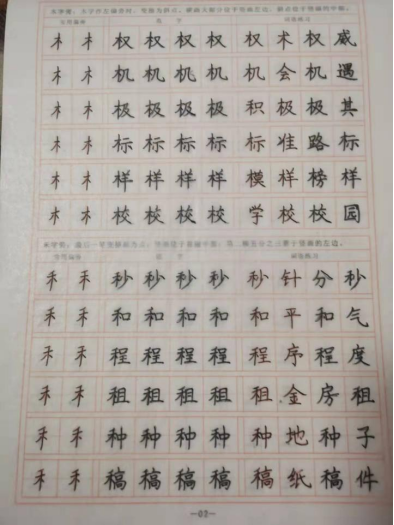 木 木 权 权 权 权 权 术 权 威
木 木 机 机 机 机 机 会 机 遇
木 木 极 极 极 极 积 极 极 其
木 木 标 标 标 标 标 准 路 标
木 木 样 样 样 样 模 样 榜 样
木 木 校 校 校 校 学 校 校 园
禾 禾 秒 秒 秒 秒 秒 针 分 秒
禾 禾 和 和 和 和 和 平 和 气
禾 禾 程 程 程 程 程 序 程 度
禾 禾 租 租 租 租 租 金 房 租
禾 禾 种 种 种 种 种 地 种 子
禾 禾 稿 稿 稿 稿 稿 纸 稿 件
—02—